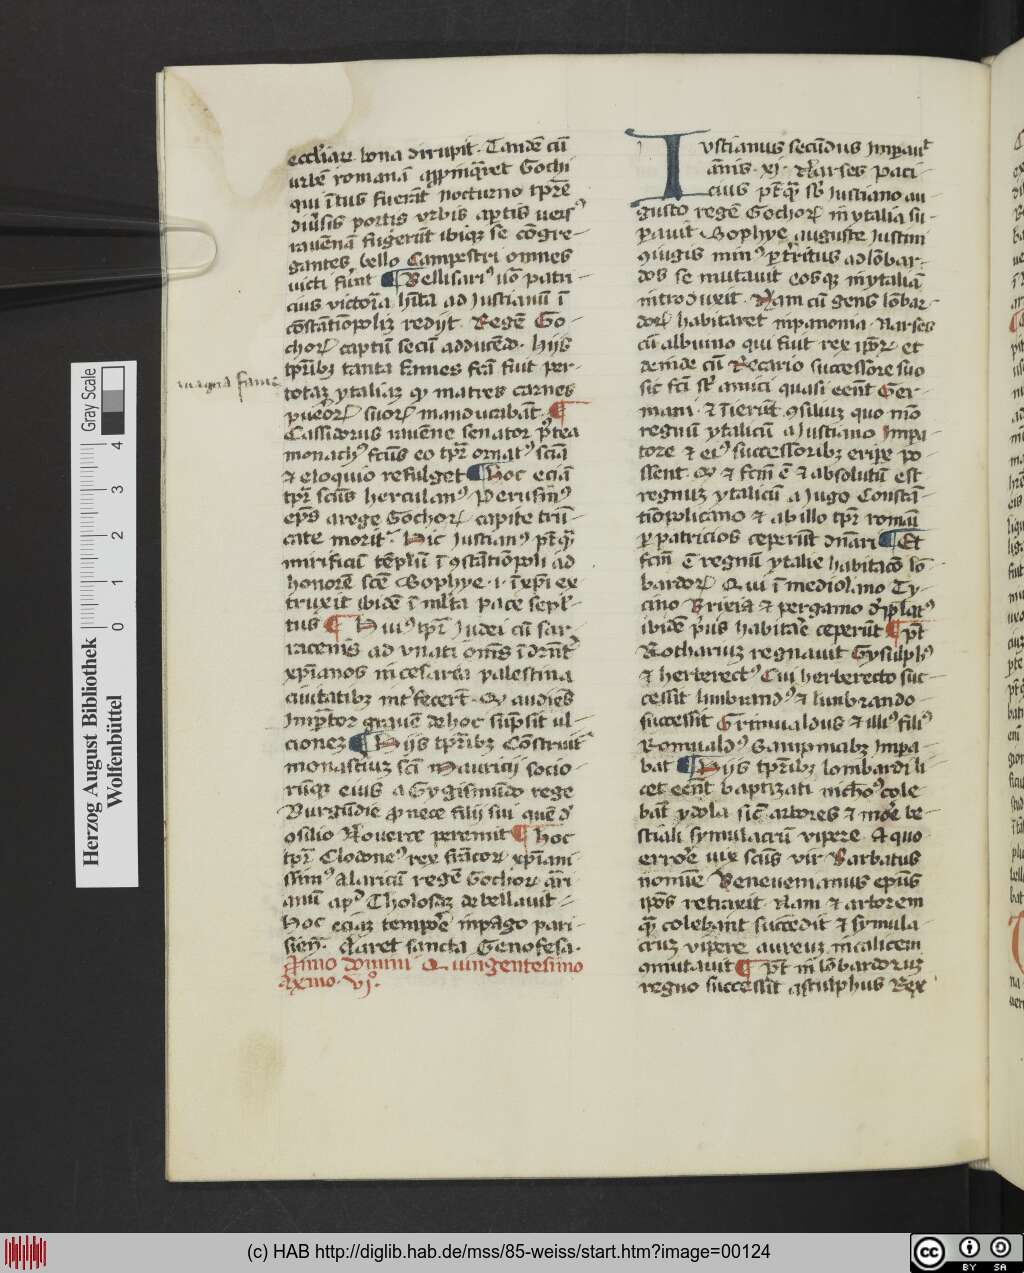 eccl'iarz bona diripit. Tandē cū
urbē romanā appīq̄ret Gochi
qui ītus fuerāt nocturno tpr̄e
diūsis portis vrbis aptis vers9
rauenā fugerūt ibiq3 se cōgre-
gantes bello Campestri omnes
uicti fūnt ¶ Bellisari9 uō patri-
cius victoria hīta ad Justianū ī
cōstātiopoliz redijt. Regē Go-
chorz captiū secū adducēdo. hijs
tpr̄ib3 tanta ffames frā fuit per
totaz ytaliaz q matres carnes
pueorz suorz manducabāt. ¶
Cassidorus rauēne senator p̄tea
monach9 fc̄us eo tpr̄ ornat9 sciā
& eloquio refulget ¶ Hoc eciā
tpr̄ sc̄us herculan9 Perusin9
ep̄s a rege Gochorz capite trū-
cate morit. Hic Justian9 pt̄q̄3
mirificū tēplū ī 9stātiopoli ad
honorē sc̄e Sophye .i. ī xp̄i ex
truxit ibidē ī ml'ta pace sepl'-
tus ¶ Hui9 tpr̄ Judei cū sar-
racenis ad vnati om̄s īdrūt
xp̄ianos in cesarea palestina
ciuitatib3 int'fecert. Q audiēs
Jmp̄tor grauē de hoc sūpsit ul-
cionez ¶ Hijs tpr̄ib3 Cōstruit
monasteiuz sc̄i Mauricij socio-
rūq3 eius a Gygismūdo rege
Burgūdie p nece filij sui quē d'
9silio Nouerce peremit ¶ Hoc
tpr̄ Clodone9 rex frācorz xp̄iani-
ssim9 alaricū regē Gochorz arri-
anū ap' Tholosaz debellauit-
Hoc eciaz tempore in pago pari-
sien̄. claret sancta Genofefa.
Anno domini Quingentesimo
lxxmo. vj°.
magna fame
Justianus secūdus Jmpauit
ānis .xj. Narses Patri-
cius pt̄q̄3 sb' Justiano au-
gusto regē Gochorz in ytalia su-
pauit Sophye auguste Justini
9iugis min9 pt'ritus ad lōbar-
dos se mutauit eosq3 in ytaliā
introduxit. Nam cū gens lōbar-
dorz habitaret in panonia. Narses
cū albuino qui fuit rex ipōrz et
deinde cū Recario successore suo
sic fc̄i st' amici quasi eēnt Ger-
mani. & īierūt 9siliuz quo mō
regnū ytalicū a Justiano Jmpa-
tore & ei9 successorib3 eripe po-
ssent. Q & fc̄m ē & absolutū est
regnuz ytalicū a Jugo Constā-
tiopolicano & ab illo tpr̄ romāi
p patricios ceperūt dn̄ari ¶ Et
fc̄m ē regnū ytalie habitacō lō-
bardorz Qui ī mediolano Ty-
cino Brixia & pergamo
ibidē p'us habitare ceperūt ¶ pt̄
Rotharius regnauit Gysulph9
& herberect9 Cui herberecto suc-
cessit linbrand9 & linbrando-
successit Grimualdus & illi9 fili9
Romuald9 Garipmab3 Jmpa-
bat ¶ Hijs tpr̄ib3 lombardi li-
cet eēnt baptizati nicho9 cole-
bāt ydola sic arbores & more be-
stiali symulacrū vipere. A quo
errore uix sc̄us vir Barbatus
nomīe Beneuentanus ep̄us
ip̄os retraxit. Nam & arborem
quā colebant succedit & symula-
cruz vipere aureuz in calicem
9mutauit ¶ pt̄ in lōbardoruz
regno successit astulphus Rex
Herzog August Bibliothek
Wolfenbüttel
Gray Scale
0 1 2 3 4
(c) HAB http://diglib.hab.de/mss/85-weiss/start.htm?image=00124
cc BY SA